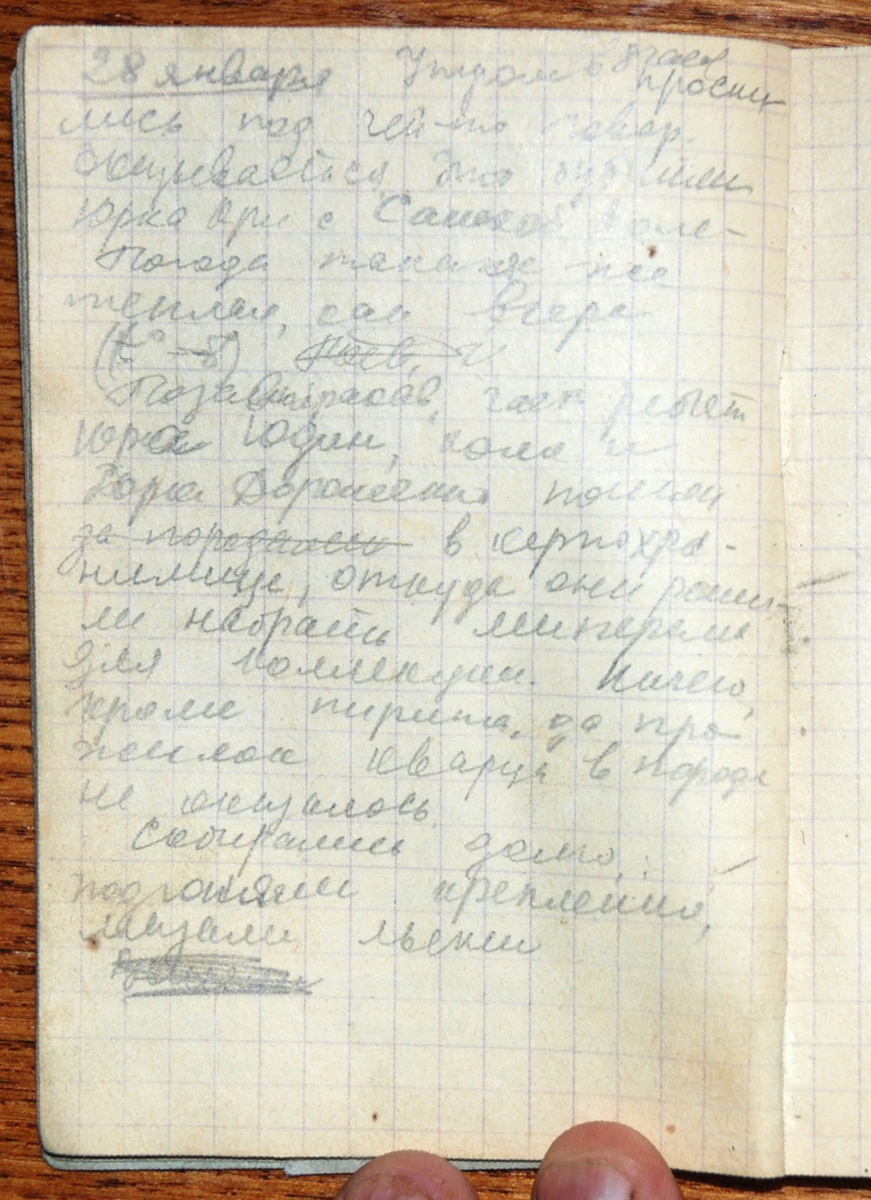 28 января Утром в 8 часов
просну-
лись под чей-то говор.
Оказывается это
Юрка Кри с Сашкой Коле-
Погода такая же
теплая, как вчера
(t° -5)
Позавтракав, часть ребят
Юра Юдин, Коля и
Юра Дорошенко пошли
за породами в кернохра-
нилище, откуда они реши-
ли набрать минералы
для коллекции. Ничего,
кроме пирита, да про-
жилок кварца в породе
не оказалось.
Собирались долго:
подгоняли крепления,
мазали лыжи